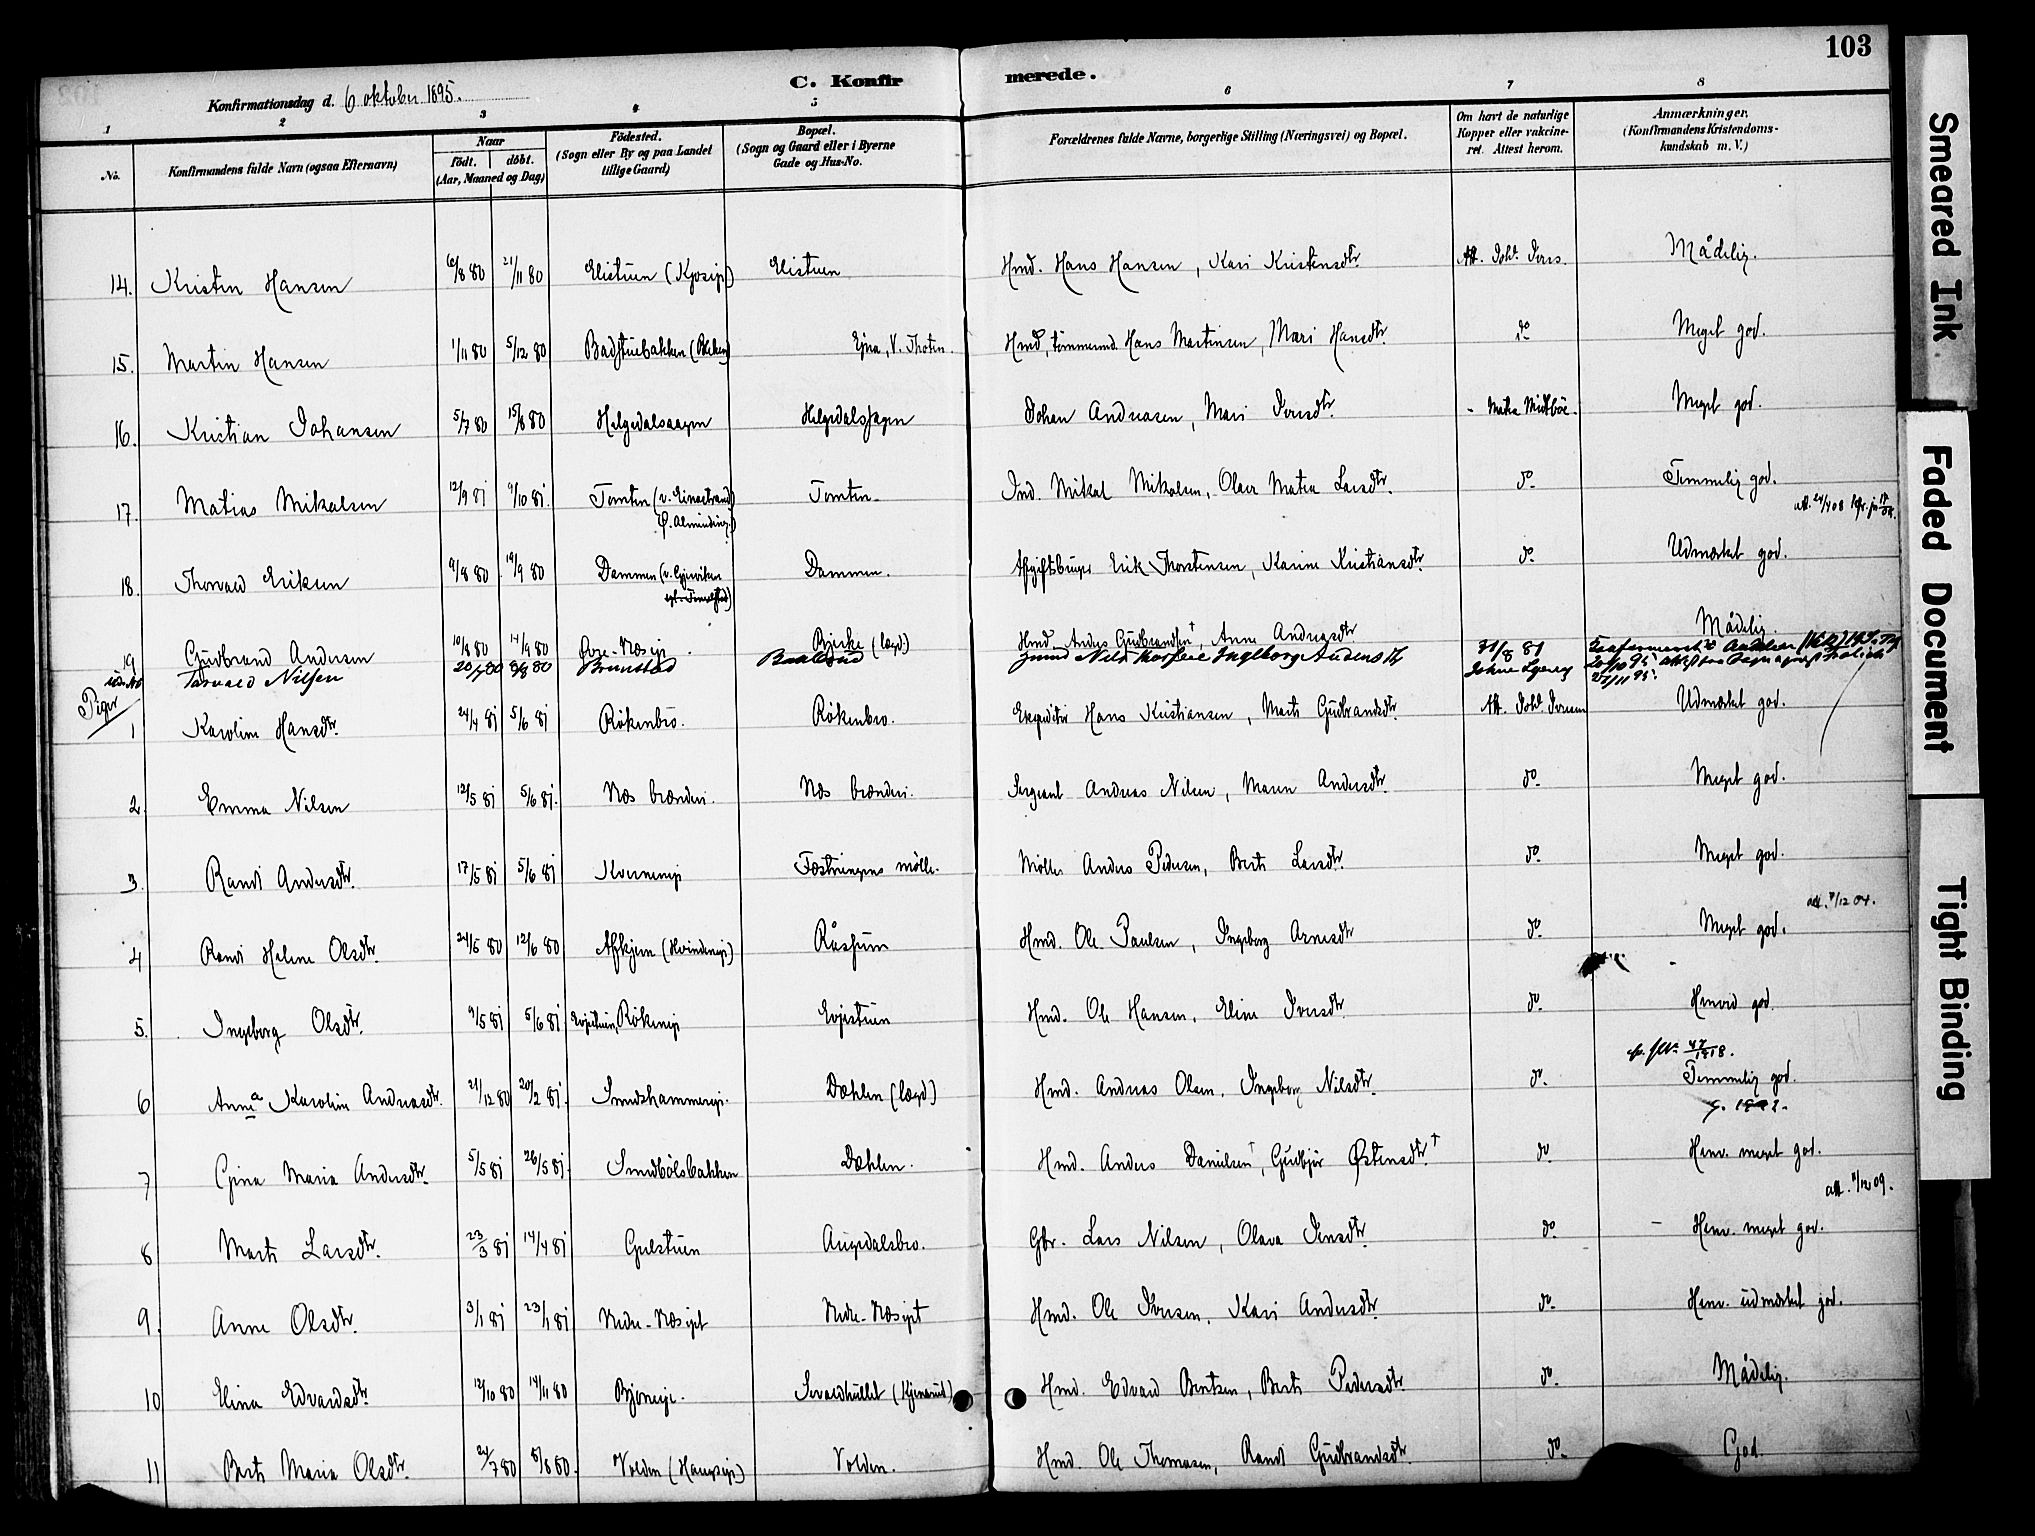 103
C. Konfirmerede.
Konfirmationsdag d. 6 oktober 1895.
1 2 3 4 5 6 7 8
No.
Konfirmandens fulde Navn (ogsaa Efternavn)
Naar
födt. döbt.
(Aar, Maaned og Dag)
Födested.
(Sogn eller By og paa Landet
tillige Gaard)
Bopæl.
(Sogn og Gaard eller i Byerne
Gade og Hus-No.
Forældrenes fulde Navne, borgerlige Stilling (Næringsvei) og Bopæl.
Om havt de naturlige
Kopper eller vakcine-
ret. Attest herom.
Anmærkninger.
(Konfirmandens Kristendoms-
kundskab m. V.)
14. Kristen Hansen 6/8 80 21/11 80 Elistuen Elistuen Hmd. Hans Hansen, Kari Kristensdtr. Att. Mådelig.
15. Martin Hansen 1/11 80 5/12 80 Badstuebakken Ejna, V. Thoten. Hmd, tömmermd. Hans Martinsen, Mari Hansdtr. do Meget god.
16. Kristian Johansen 5/7 80 15/8 80 Helgedalshagen Helgedalshagen Johan Andreasen, Mari Iversdtr. Meget god.
17. Matias Mikalsen 12/9 81 9/10 81. Tomten (v. Einastrand) Tomten Ind. Mikal Mikalsen, Olava Matea Larsdtr. do Temmelig god.
Alminding.)
18. Thorvald Eriksen 9/8 80 19/9 80 Dammen Dammen. Erik Thorstensen, Karine Kristiansdtr. do Udmærket god.
19 Gudbrand Andersen 10/8 80 14/9 80 Hmd. Anders Gudbrandsen †, Anne Andreasdtr. Mådelig
Torvald Nilsen 20/7 80 8/8 80 Brunstad 31/8 81
Piger
1 Karoline Hansdtr. 24/4 81 5/6 81 Rökenbro. Rökenbro. Hans Kristiansen, Marte Gudbrandsdtr. Udmærket god.
2. Emma Nilsen 12/5 81 5/6 81. Næs brænderi. Næs brænderi. Sergeant Andreas Nilsen, Maren Andersdtr. do Meget god.
3. Randi Andersdtr. 17/5 81 5/6 81 Kverneneje Fæstningens mölle. Möller Anders Pedersen, Berte Larsdtr. do. Meget god.
att. 7/12 04.
4 Randi Helene Olsdtr. 24/5 80 12/6 80 Råssum Hmd. Ole Paulsen, Ingeborg Arnesdtr do. Meget god.
5. Ingeborg Olsdtr. 9/5 81 5/6 81 Evjestuen Hmd. Ole Hansen, Eline Iversdtr. do. Henved god
6 Anna Karoline Andreasdtr. 21/12 80 20/2 81. Smedshammereje. Dæhlen (lægd) Hmd. Andreas Olsen, Ingeborg Nilsdtr. do. Temmelig god.
7 Gina Maria Andersdtr. 5/5 81 26/5 81. Smedbölsbakken Dæhlen. Hmd. Anders Danielsen †, Gudbjör Østensdtr. † do Henv. meget god.
att. 11/12 09.
8 Marte Larsdtr. 23/3 81 14/4 81 Gulstuen Augedalsbro. Gbr. Lars Nilsen, Olava Jensdtr. do Henv. meget god.
9. Anne Olsdtr. 3/1 81 23/1 81 Nedre-Næsejet Nedre-Næsejet Hmd. Ole Iversen, Kari Andersdtr. do. Henv. udmærket god.
10 Elina Edvardsdtr 12/10 80 14/11 80 Bjöneje. Hmd. Edvard Berntsen, Berte Pedersdtr. do. Mådelig.
11 Berte Maria Olsdtr. 24/7 80 5/8 80. Volden Volden. Hmd. Ole Thomasen, Randi Gudbrandsdtr. do. God
Smeared Ink
Faded Document
Tight Binding